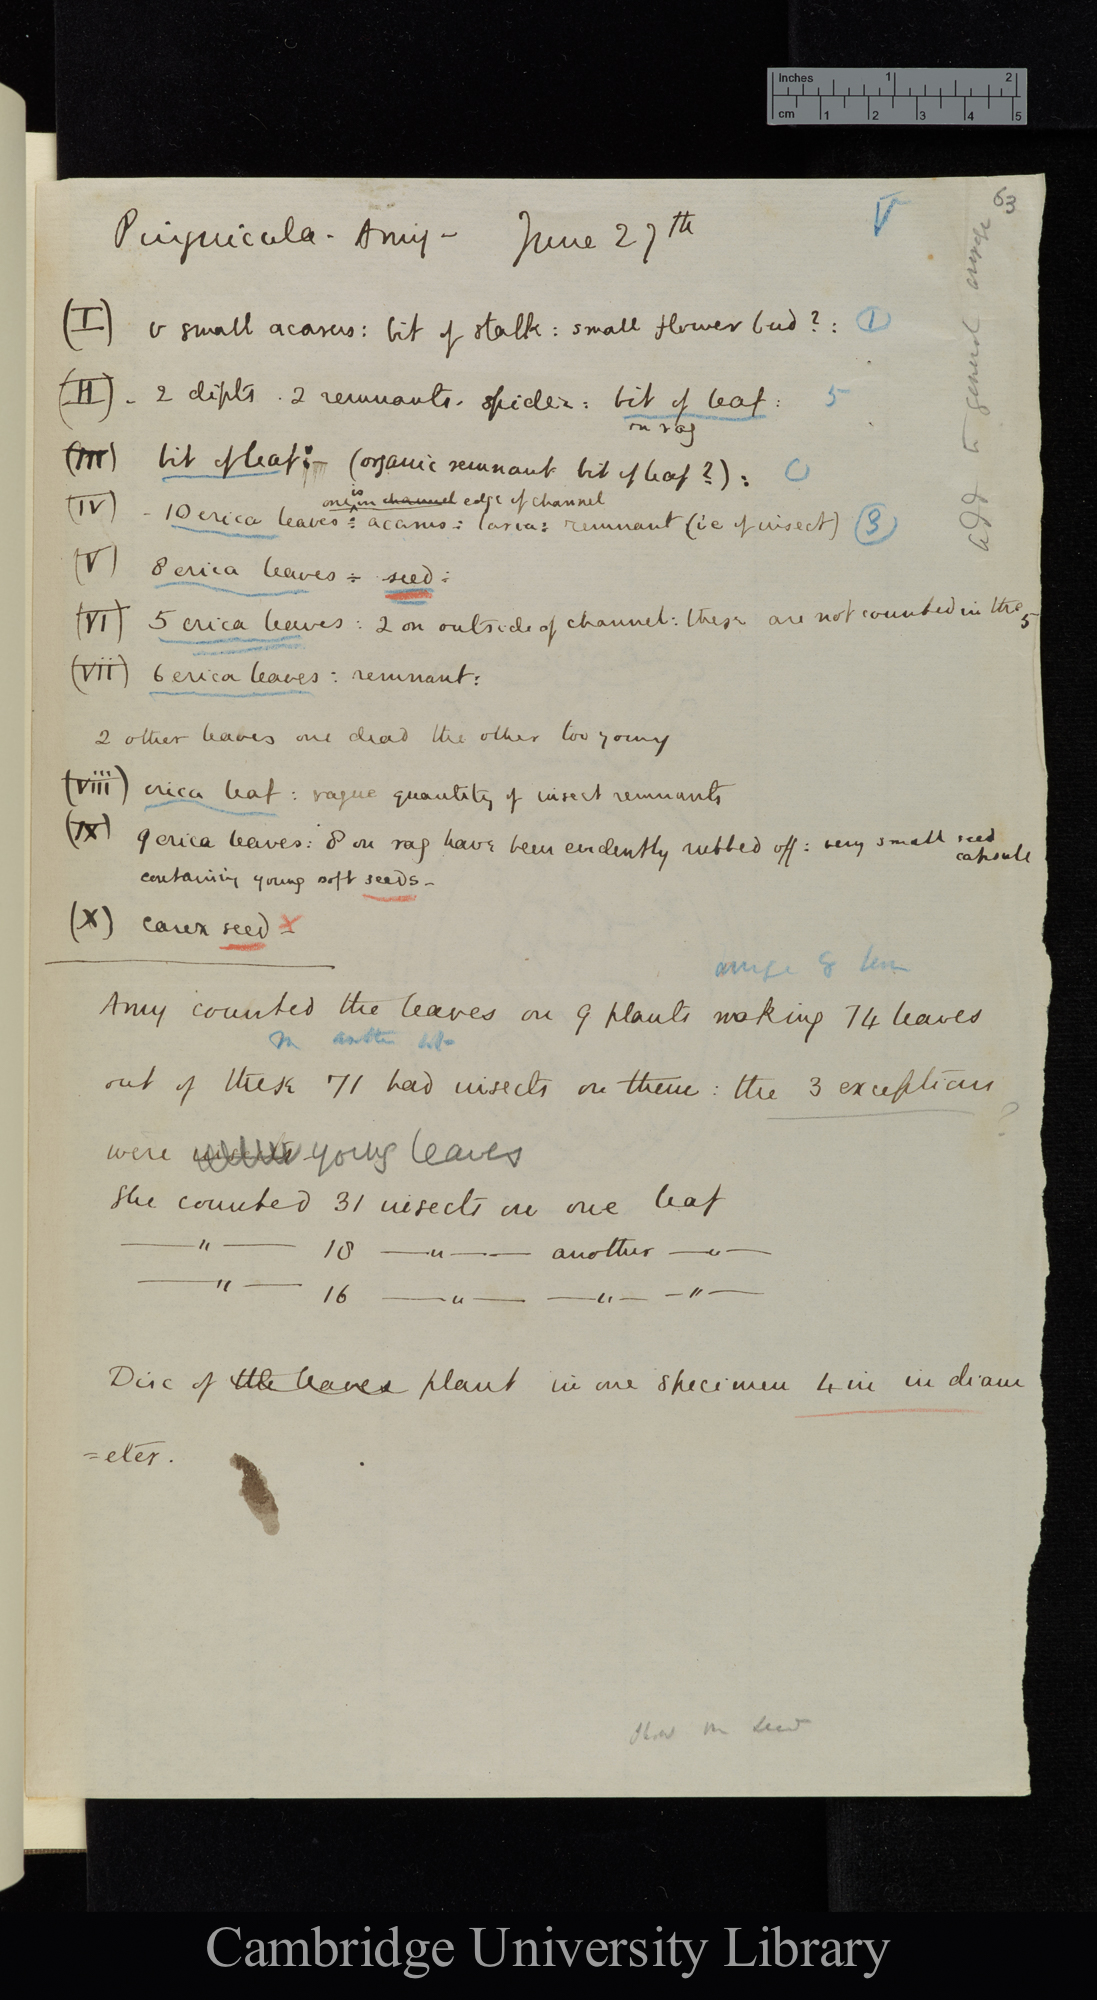 Inches 1 2
cm 1 2 3 4 5
63
V
Pinguicula - Amy - June 27th
add to general
(I) v small acarus: bit of stalk: small flower bud?: 1
(II) - 2 dipts. 2 remnants. spider: bit of leaf: 5
on rag
(III) bit of leaf: (organic remnant bit of leaf?): 0
one is in channel edge of channel
(IV) - 10 erica leaves: acarus: larva: remnant (ie of insect) 3
(V) 8 erica leaves: seed:
(VI) 5 erica leaves: 2 on outside of channel: these are not counted in the 5
(vii) 6 erica leaves: remnant:
2 other leaves one dead the other too young
(viii) erica leaf: vague quantity of insect remnants
(IX) 9 erica leaves: 8 on rag have been evidently rubbed off: very small seed capsule
containing young soft seeds -
(X) carex seed x
Amy counted the leaves on 9 plants making 74 leaves
out of these 71 had insects on them: the 3 exceptions
were young leaves
She counted 31 insects on one leaf
—"— 18 —"— another —"—
—"— 16 —"— —"— —"—
Disc of the leaves plant in one specimen 4 in in diam
=eter.
Cambridge University Library